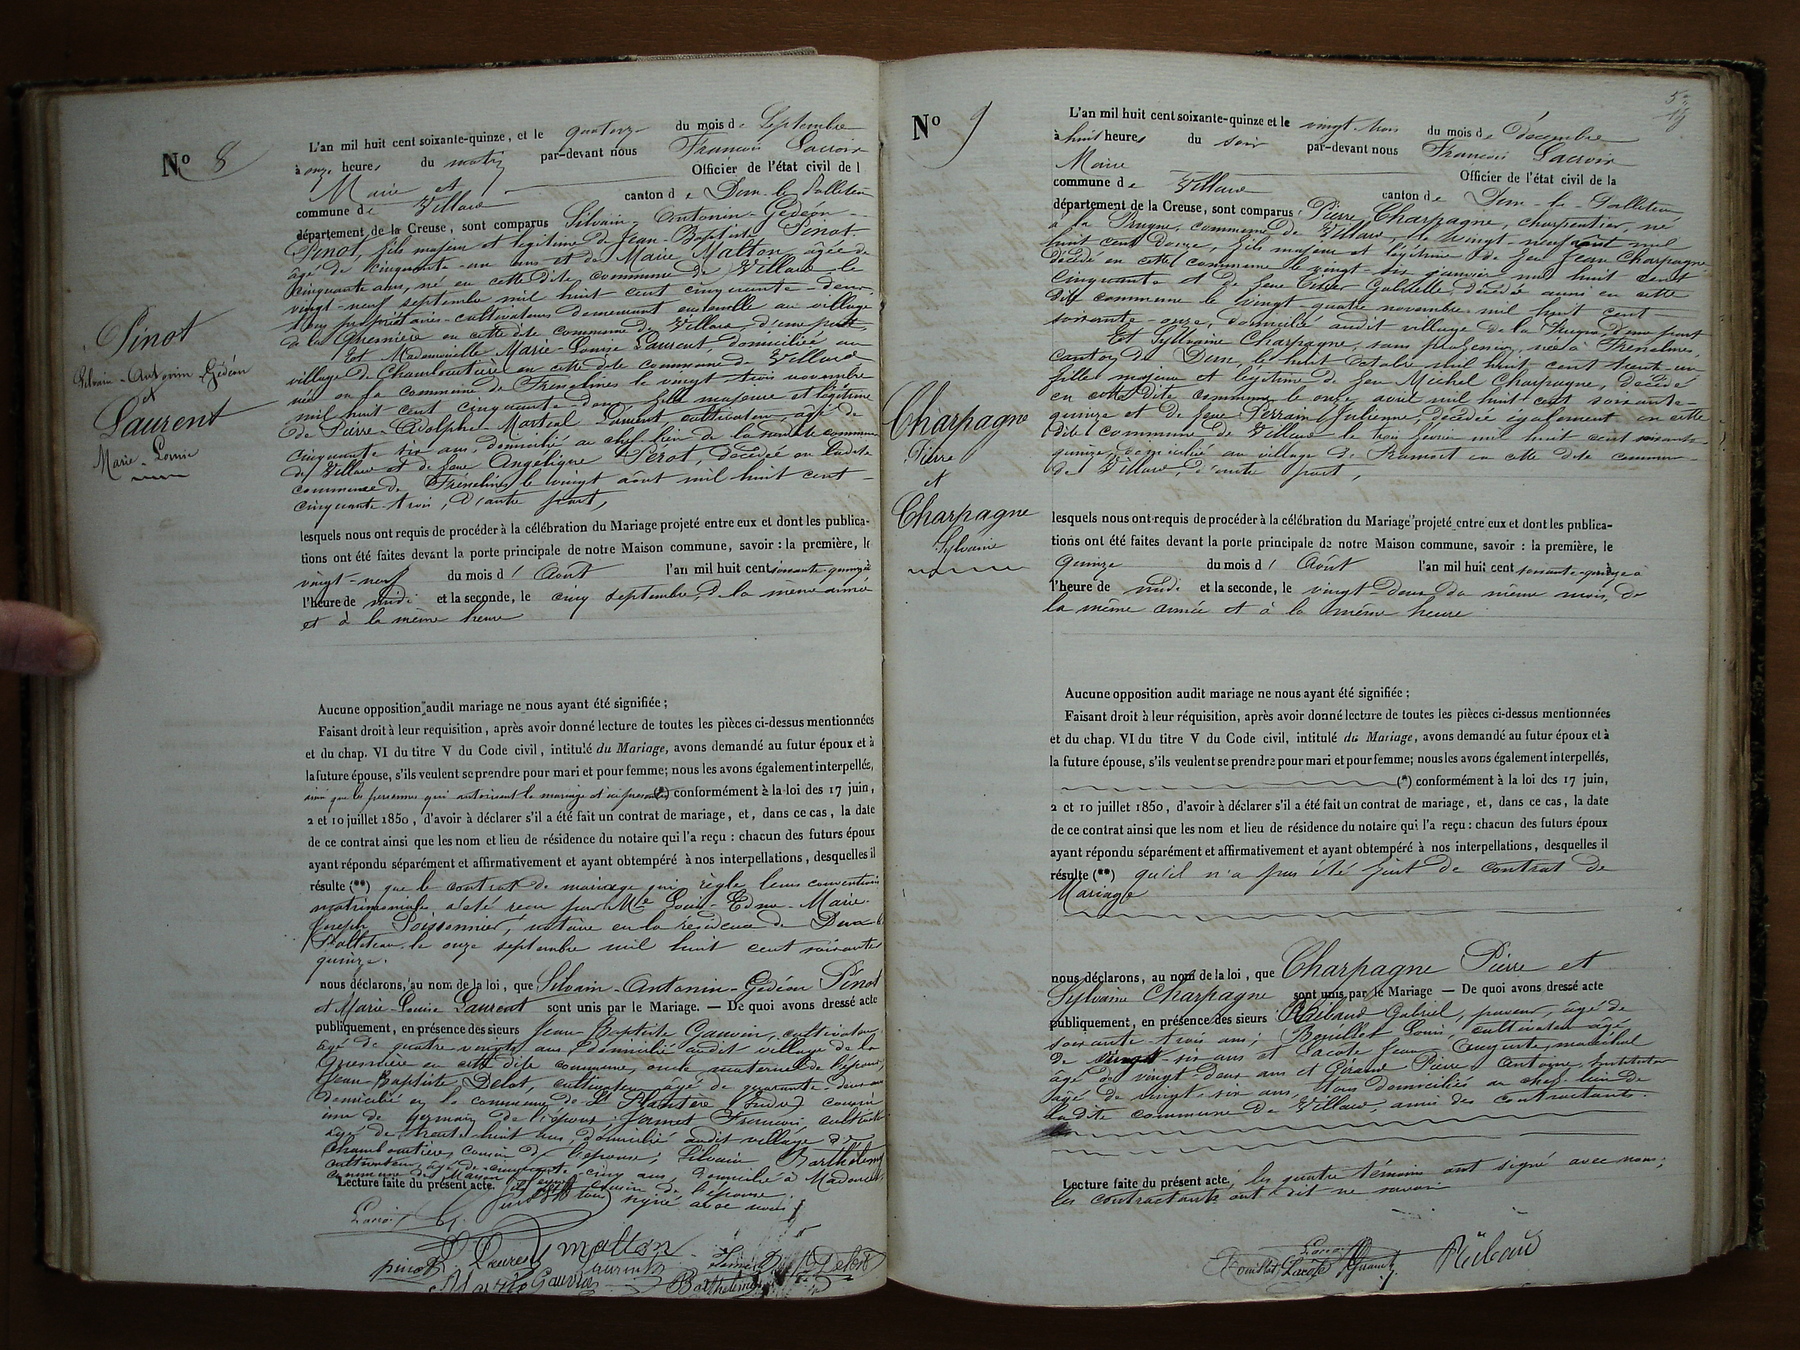 Nº 8
Pinot
Silvain-Antonin-Gédéon
et
Laurent
Marie-Louise
L'an mil huit cent soixante-quinze, et le quatorze du mois de Septembre
à onze heures du matin par-devant nous François Lacroix
Maire et Officier de l'état civil de l
commune de Villard canton de Dun-le-Palleteau
département de la Creuse, sont comparus Silvain-Antonin-Gédéon-
Pinot, fils majeur et légitime de Jean-Baptiste Pinot
âgé de cinquante-un ans et de Marie Malton, âgée de
cinquante ans, né en cette dite commune de Villard le
vingt-neuf septembre mil huit cent cinquante-deux,
tous propriétaires-cultivateurs demeurant ensemble au village
de la en cette dite commune de Villard, d'une part,
Et Mademoiselle Marie-Louise Laurent, domiciliée au
village de Chamboutière en cette dite commune de Villard
née en la commune de Fresselines le vingt trois novembre
mil huit cent cinquante deux fille majeure et légitime
de Pierre-Adolphe-Martial Laurent cultivateur, âgé de
cinquante six ans, domicilié au chef lieu de la susdite commune
de Villard et de feue Angélique Perot, décédée en ladite
commune de Fresselines le vingt août mil huit cent
cinquante-trois, d'autre part,
lesquels nous ont requis de procéder à la célébration du Mariage projeté entre eux et dont les publica-
tions ont été faites devant la porte principale de notre Maison commune, savoir : la première, le
vingt-neuf du mois d'Août l'an mil huit cent soixante quinze à
l'heure de midi et la seconde, le cinq septembre, de la même année
et à la même heure
Aucune opposition audit mariage ne nous ayant été signifiée ;
Faisant droit à leur requisition, après avoir donné lecture de toutes les pièces ci-dessus mentionnées
et du chap. VI du titre V du Code civil, intitulé du Mariage, avons demandé au futur époux et à
la future épouse, s'ils veulent se prendre pour mari et pour femme; nous les avons également interpellés,
ainsi que les personnes qui autorisent le mariage et ici présentes (*) conformément à la loi des 17 juin,
2 et 10 juillet 1850, d'avoir à déclarer s'il a été fait un contrat de mariage, et, dans ce cas, la date
de ce contrat ainsi que les nom et lieu de résidence du notaire qui l'a reçu : chacun des futurs époux
ayant répondu séparément et affirmativement et ayant obtempéré à nos interpellations, desquelles il
résulte (**) que le contrat de mariage qui règle leurs conventions
matrimoniales a été reçu par Mtre Louis-Edme-Marie-
Joseph Poissonnier, notaire en la résidence de Dun-le
Palleteau le onze septembre mil huit cent soixante
quinze.
nous déclarons, au nom de la loi, que Silvain-Antonin-Gédéon Pinot
et Marie-Louise Laurent sont unis par le Mariage. — De quoi avons dressé acte
publiquement, en présence des sieurs Jean-Baptiste Gauvin, cultivateur,
âgé de quatre vingts ans, domicilié audit village de la
en cette dite commune, oncle maternel de l'époux,
Jean-Baptiste Delot, cultivateur, âgé de quarante-deux ans
domicilié en la commune de St Plantère (Indre) cousin
issu de germain de l'époux; Jamet François, cultivateur
âgé de trente huit ans, domicilié audit village de
Chamboutière, cousin de l'épouse; Silvain Barthélemy
cultivateur, âgé de cinquante-cinq ans, domicilié à
commune de Maison cousin de l'épouse
Lecture faite du présent acte. tous signé avec nous.
Lacroix
pinot Laurent malton Jamet Delot
Marie Laurent Gauvin Barthélemy
Nº 9
Charpagne
Pierre
et
Charpagne
Sylvaine
L'an mil huit cent soixante-quinze et le vingt trois du mois de décembre
à huit heures du soir par-devant nous François Lacroix
Maire Officier de l'état civil de la
commune de Villard canton de Dun-le-Palleteau,
département de la Creuse, sont comparus Pierre Charpagne, charpentier, né
à la Prugne, commune de Villard le vingt-neuf août mil
huit cent douze, fils majeur et légitime de feu Jean Charpagne
décédé en cette commune le vingt-six janvier mil huit cent
cinquante et de feue Gabrielle, décédée aussi en cette
dite commune le vingt-quatre novembre mil huit cent
soixante-onze, domicilié audit village de la Prugne, d'une part
Et Sylvaine Charpagne, sans profession, née à Fresselines,
canton de Dun, le huit octobre mil huit cent trente-un
fille majeure et légitime de feu Michel Charpagne, décédé
en cette dite commune le onze avril mil huit cent soixante-
quinze et de feue Perrain Julienne, décédée également en cette
dite commune de Villard le trois février mil huit cent soixante
quinze, domiciliée au village de en cette dite commune
de Villard, d'autre part,
lesquels nous ont requis de procéder à la célébration du Mariage projeté entre eux et dont les publica-
tions ont été faites devant la porte principale de notre Maison commune, savoir : la première, le
Quinze du mois d'Août l'an mil huit cent soixante-quinze à
l'heure de midi et la seconde, le vingt deux du même mois, de
la même année et à la même heure
Aucune opposition audit mariage ne nous ayant été signifiée ;
Faisant droit à leur réquisition, après avoir donné lecture de toutes les pièces ci-dessus mentionnées
et du chap. VI du titre V du Code civil, intitulé du Mariage, avons demandé au futur époux et à
la future épouse, s'ils veulent se prendre pour mari et pour femme; nous les avons également interpellés,
(*) conformément à la loi des 17 juin,
2 et 10 juillet 1850, d'avoir à déclarer s'il a été fait un contrat de mariage, et, dans ce cas, la date
de ce contrat ainsi que les nom et lieu de résidence du notaire qui l'a reçu : chacun des futurs époux
ayant répondu séparément et affirmativement et ayant obtempéré à nos interpellations, desquelles il
résulte (**) qu'il n'a pas été fait de contrat de
Mariage
nous déclarons, au nom de la loi, que Charpagne Pierre et
Sylvaine Charpagne sont unis par le Mariage — De quoi avons dressé acte
publiquement, en présence des sieurs Gabriel, âgé de
soixante-trois ans; Bouillot Louis, cultivateur âgé
de vingt-six ans et Lacote Jean Auguste, maréchal
âgé de vingt deux ans et Pierre Antoine, Instituteur
âgé de vingt-six ans, tous domiciliés au chef-lieu de
la dite commune de Villard, amis des contractants.
Lecture faite du présent acte, les quatre témoins ont signé avec nous;
les contractants ont dit ne savoir
Lacroix
Bouillot Lacote